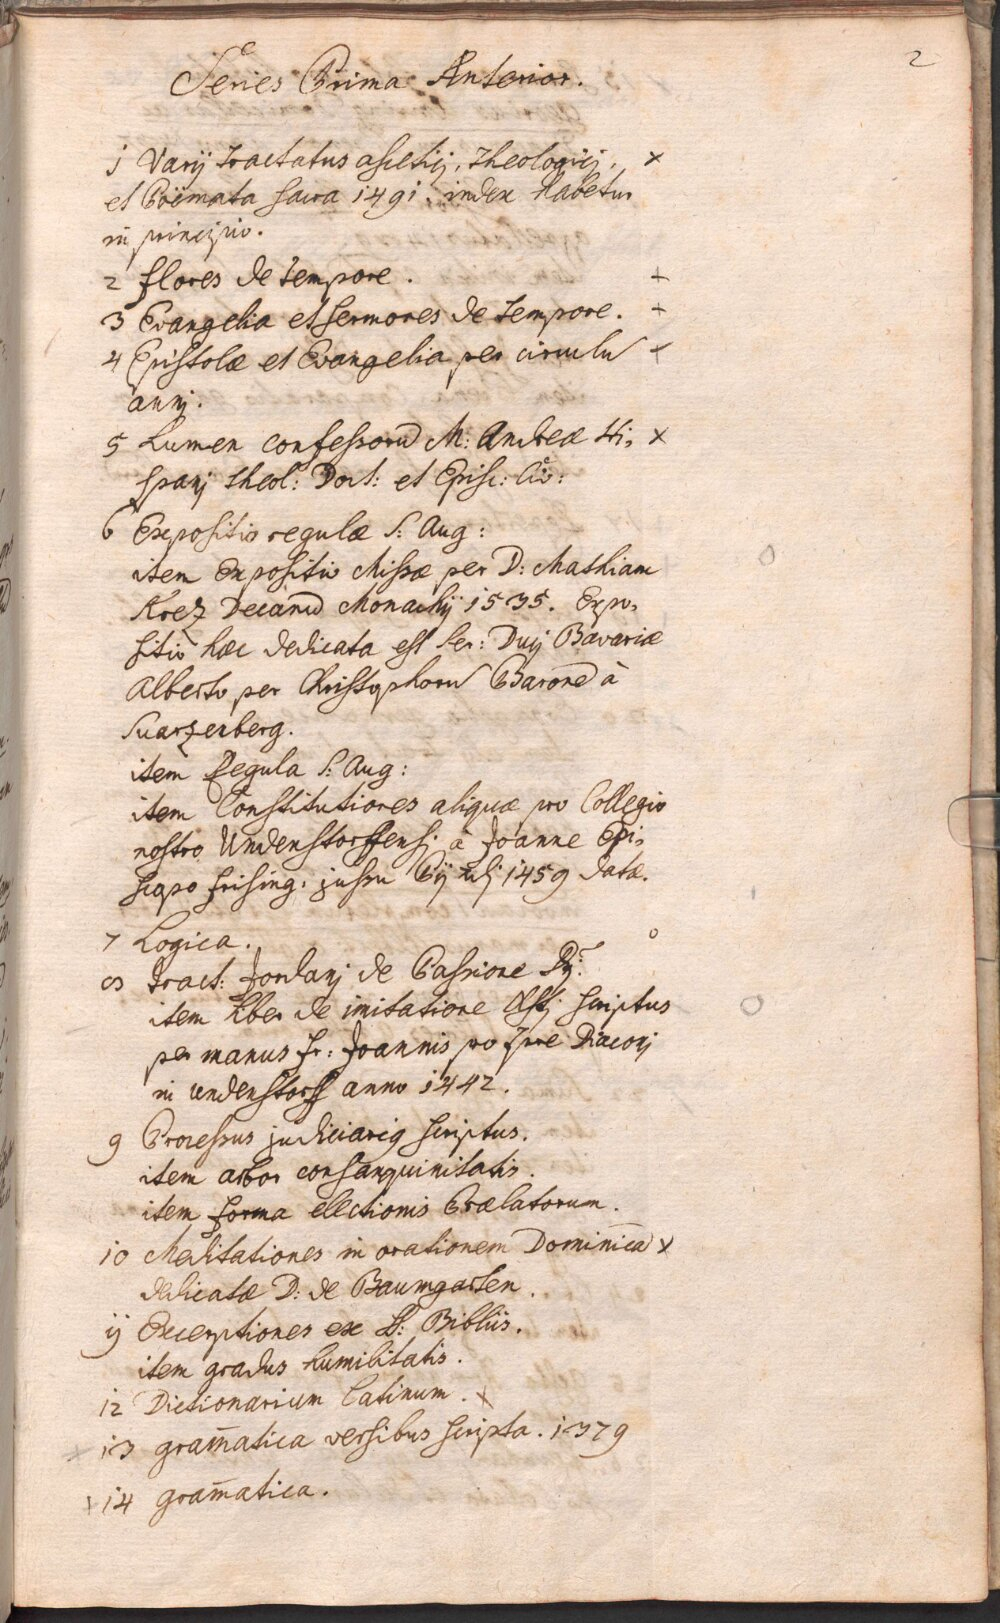 2
Series Prima Anterior.
1 Varij tractatus ascetici, theologici, x
et Poëmata sacra 1491. index habetur
in principio.
2 flores de tempore. +
3 Evangelia et sermones de tempore. +
4 Epistolæ et Evangelia per circulu x
annj.
5 Lumen confessorũ M: Andreæ Hi, x
spanj theol: Doct: et Episc: Civ:
6 Expositio regulæ S: Aug:
item Expositio Missæ per D: Mathiam
Krez Decanũ Monachij 1535. Expo,
sitio hæc dedicata est Ser: Ducj Bavariæ
Alberto per Christophoru Baronẽ à
Suarzenberg.
item Regula S: Aug:
item Constitutiones aliquæ pro Collegio
nostro Undenstorffensj à Joanne Epi,
scopo frising: jussu Pij 2dj 1459 datæ.
7 Logica. o
8 tract: Jordanj de Passione Dnj:
item liber de imitatione Xstj scriptus
per manus fr: Joannis pro tpre Diaconj
in undenstorff anno 1442.
9 Processus judiciarig scriptus.
item arbor consanguinitatis.
item forma electionis Prælatorum.
10 Meditationes in orationem Dominicã x
dedicatæ D: de Baumgarten.
ij Exceptiones ex S: Bibliis.
item gradus humilitatis.
12 Dictionarium latinum. x
x 13 gram̄atica versibus scripta. 1379
+ 14 gram̄atica.